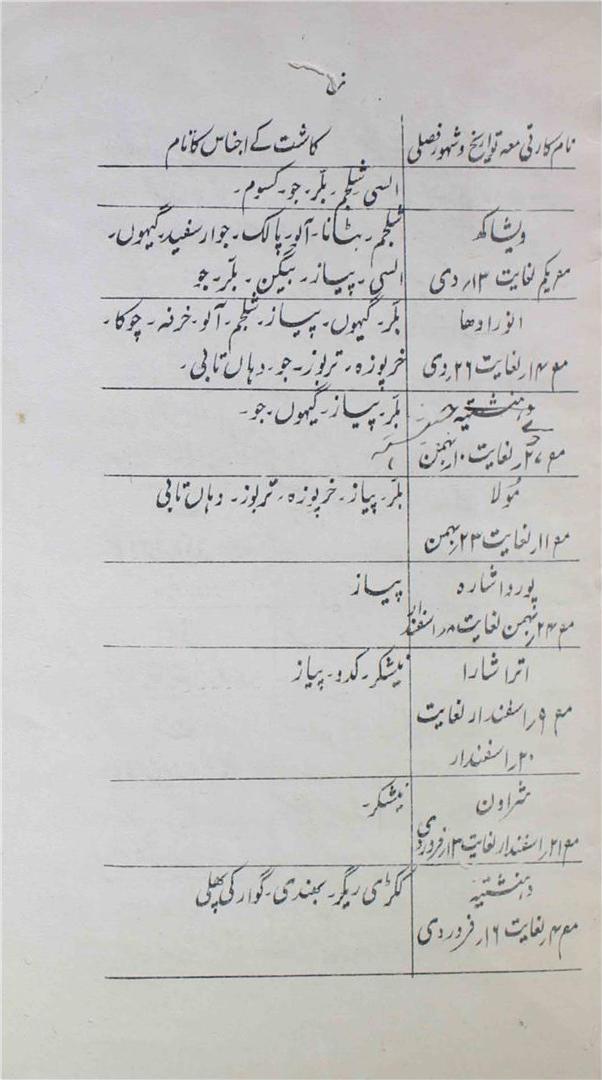 نام کارتی معہ تواریخ و شہور فصلی
کاشت کے اجناس کا نام
السی۔ شلجم۔ بلر۔ جو۔ کسوم۔
ویشاکھ
مع یکم لغایت ۱۳؍ دی
شلجم۔ بٹانا۔ آلو۔ پالک۔ جوار سفید۔ گیہوں۔
السی۔ پیاز۔ بیگن۔ بلر۔ جو
انورادھا
مع ۱۴؍ لغایت ۲۶؍ دی
بلر۔ گیہوں۔ پیاز۔ شلجم۔ آلو۔ خرفہ۔ چوکا۔
خرپوزہ۔ تربوز۔ جو۔ دہان تابی۔
مع ۲۷؍ لغایت ۱۰؍ بہمن
بلر۔ پیاز۔ گیہوں۔ جو۔
مُولا
مع ۱۱؍ لغایت ۲۳؍ بہمن
بلر۔ پیاز۔ خرپوزہ۔ تربوز۔ دہان تابی
پورواشارہ
مع ۲۴؍ بہمن لغایت ۸؍ اسفندار
پیاز
اتراشارا
مع ۹؍ اسفندار لغایت
۲۰؍ اسفندار
نیشکر۔ کدو۔ پیاز
شراون
مع ۲۱؍ اسفندار لغایت ۳؍ فروردی
نیشکر۔
دہنشتیہ
مع ۴؍ لغایت ۱۶؍ فروردی
ککڑی ریگر۔ بھنڈی۔ گوار کی پھلی